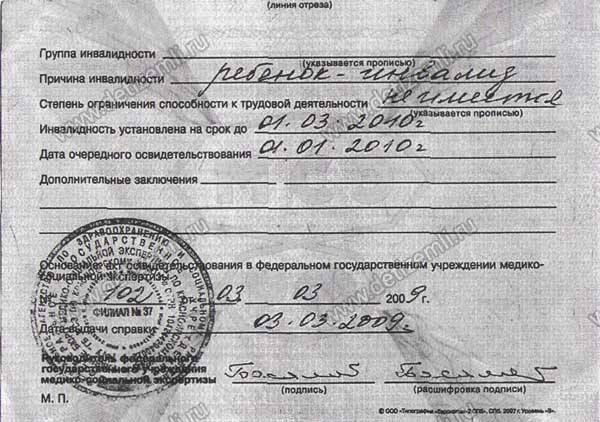 (линия отреза)
Группа инвалидности
(указывается прописью)
Причина инвалидности ребенок-инвалид
Степень ограничения способности к трудовой деятельности не имеется
(указывается прописью)
Инвалидность установлена на срок до 01.03.2010г
Дата очередного освидетельствования 01.01.2010г
Дополнительные заключения
Основание: акт освидетельствования в федеральном государственном учреждении медико-
социальной экспертизы
102 от 03 03 2009г.
ФИЛИАЛ № 37
Дата выдачи справки 03.03.2009г
Руководитель федерального
государственного учреждения
медико-социальной экспертизы
(подпись) (расшифровка подписи)
М. П.
www.detzemli.ru